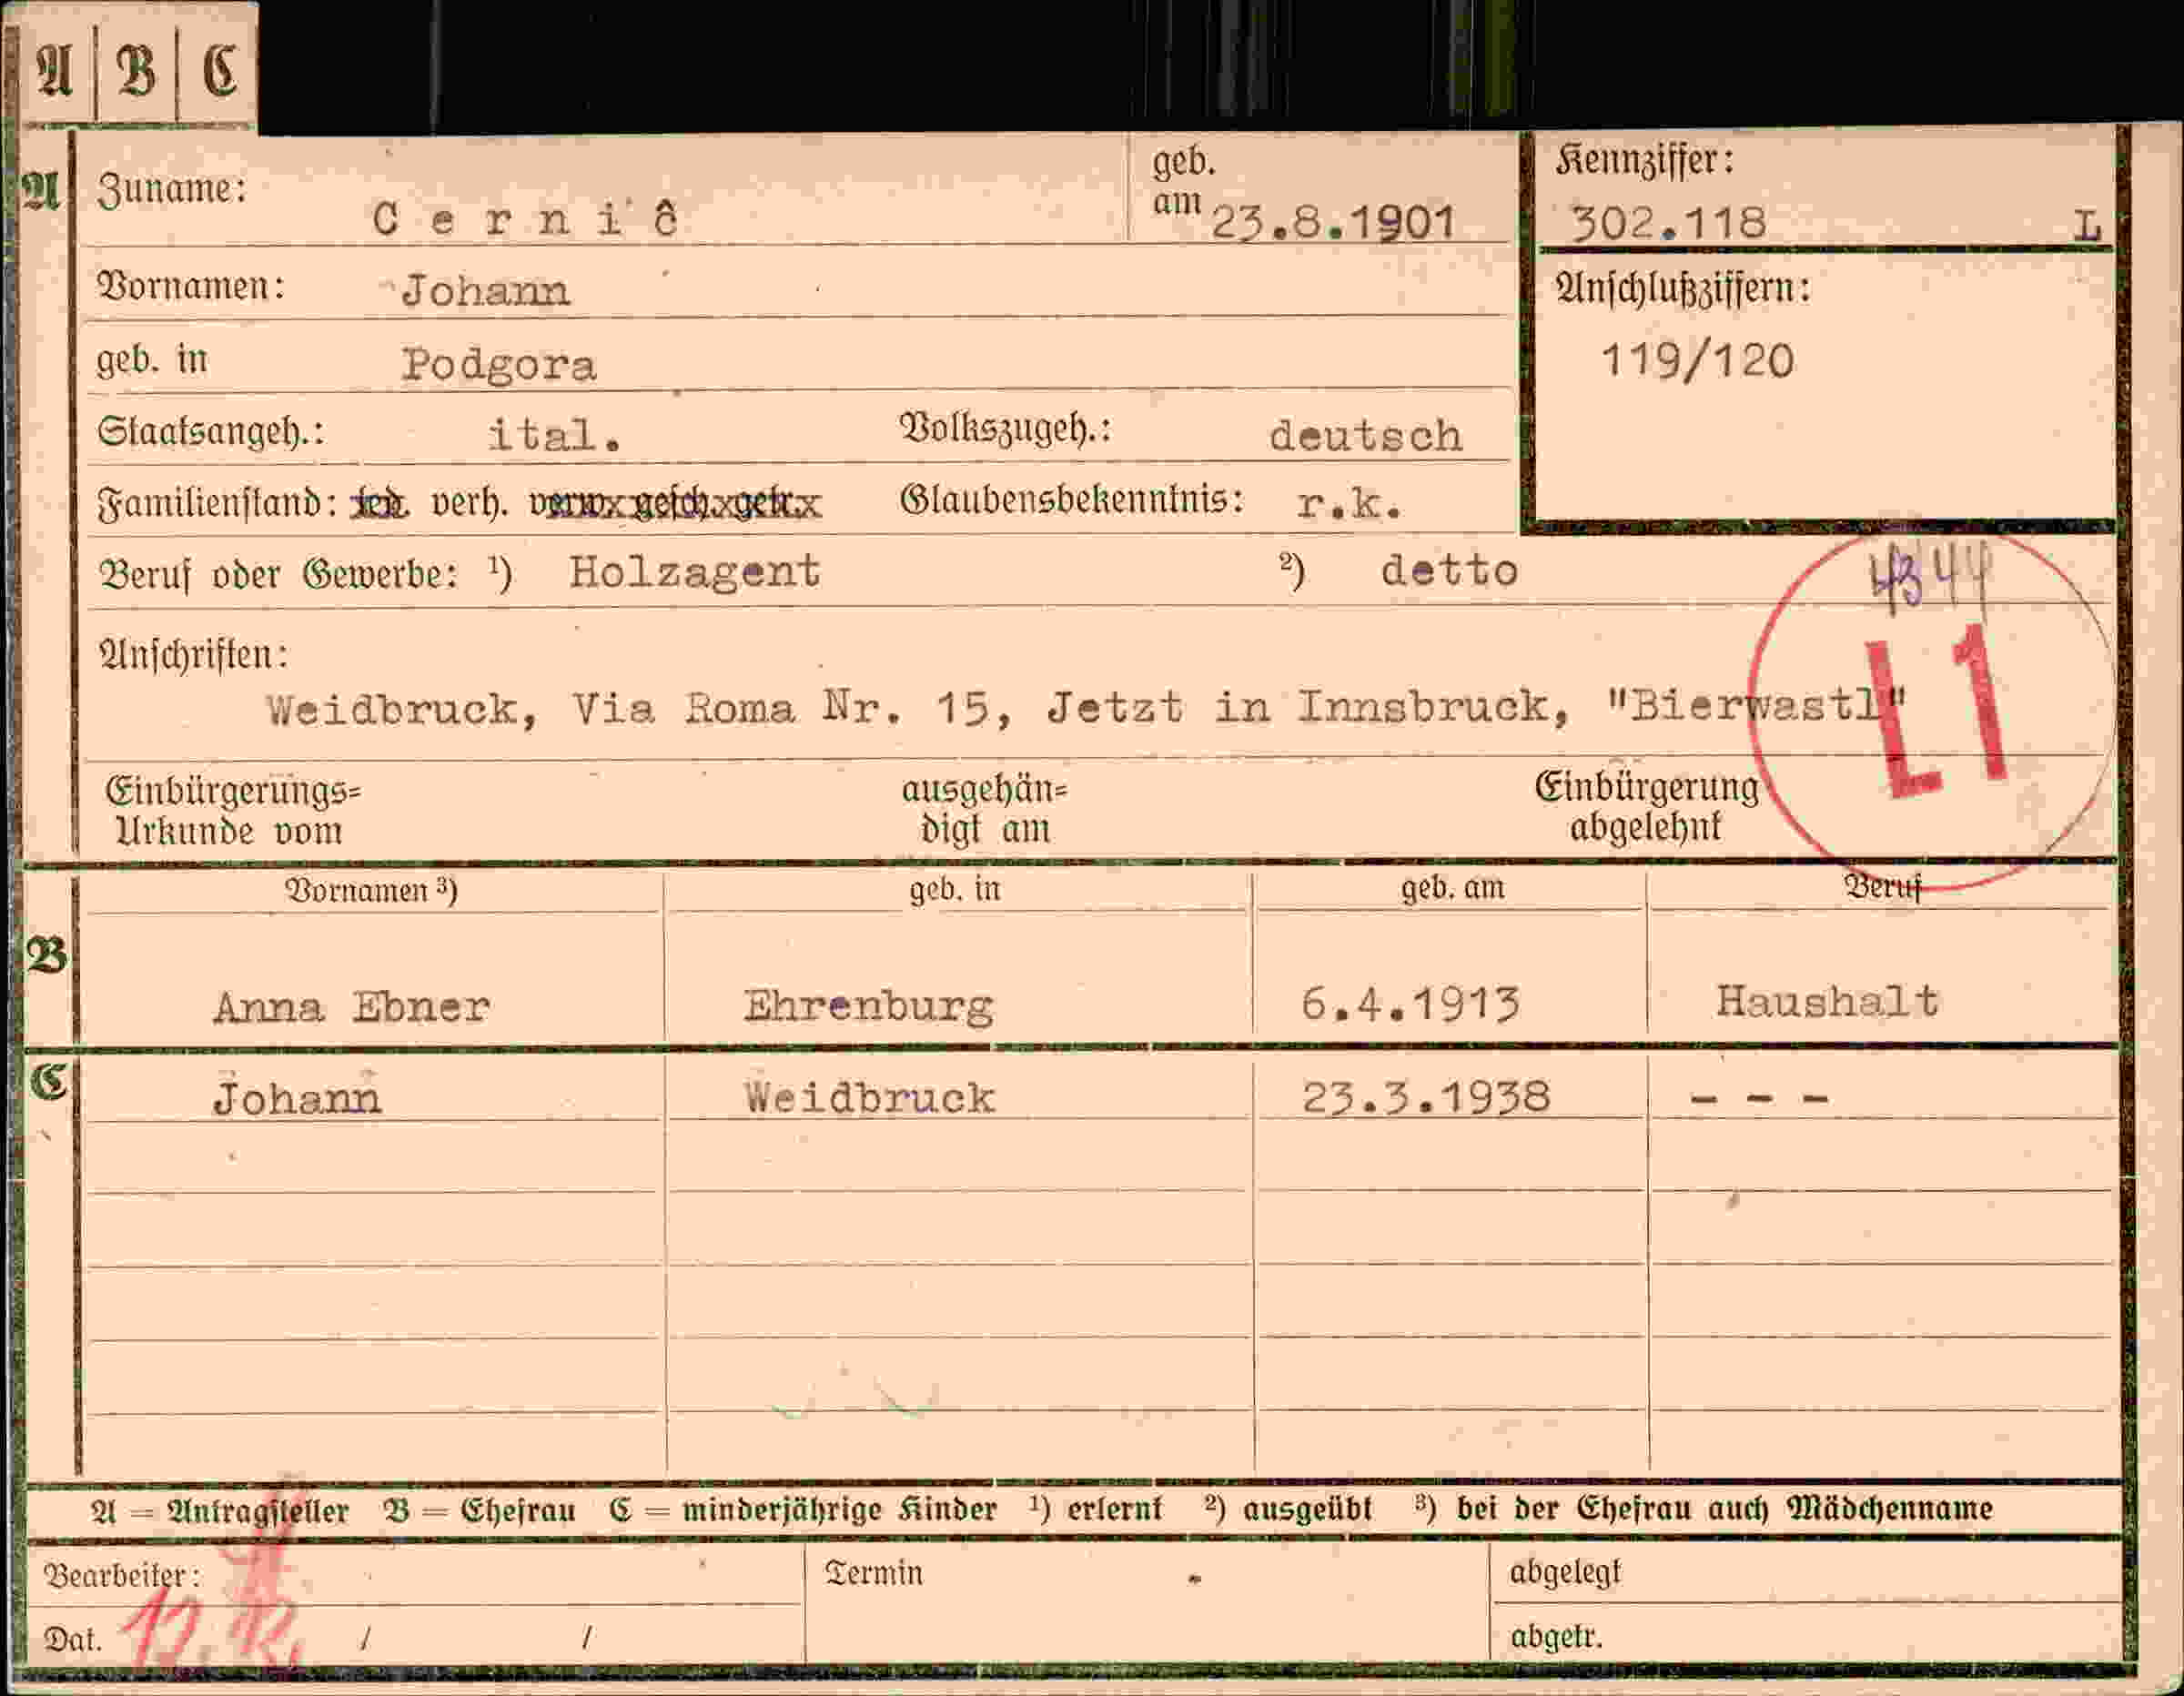 A | B | C
A Zuname: Cerniĉ geb. am 23.8.1901 Kennziffer: 302.118 L
Vornamen: Johann Anschlußziffern:
geb. in Podgora 119/120
Staatsangeh.: ital. Volkszugeh.: deutsch
Familienstand: led. verh. verw. gesch. getr. Glaubensbekenntnis: r.k.
Beruf oder Gewerbe: ¹) Holzagent ²) detto 4344
Anschriften:
Weidbruck, Via Roma Nr. 15, Jetzt in Innsbruck, "Bierwastl"
L1
Einbürgerungs= Urkunde vom ausgehän= digt am Einbürgerung abgelehnt
Vornamen ³) geb. in geb. am Beruf
B Anna Ebner Ehrenburg 6.4.1913 Haushalt
C Johann Weidbruck 23.3.1938 - - -
A = Antragsteller B = Ehefrau C = minderjährige Kinder ¹) erlernt ²) ausgeübt ³) bei der Ehefrau auch Mädchenname
Bearbeiter: Termin abgelegt
Dat. / / abgetr.